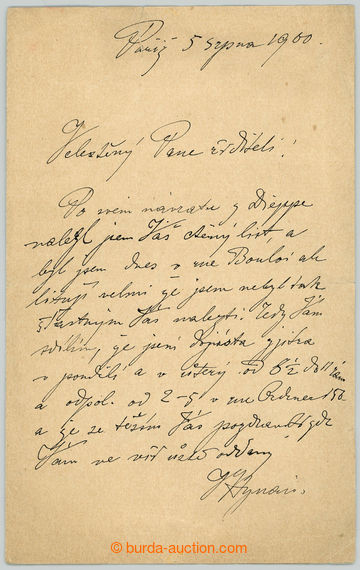 Paříž 5 srpna 1900.
Velectěný Pane řediteli!
Po svém návratu z Dieppe
nalezl jem Váš ctěný list, a
byl jsem dnes v rue Bouloi ale
lituji velmi že jsem nebyl tak
šťastným Vás nalezti. Tedy Vám
sdělím, že jsem zítra
v pondělí a v úterý od 8½ do 11
a odpol. od 2-5 v rue 150
a že se těším Vás pozdraviti
Vám ve vší úctě oddaný
VHynais.
© burda-auction.com